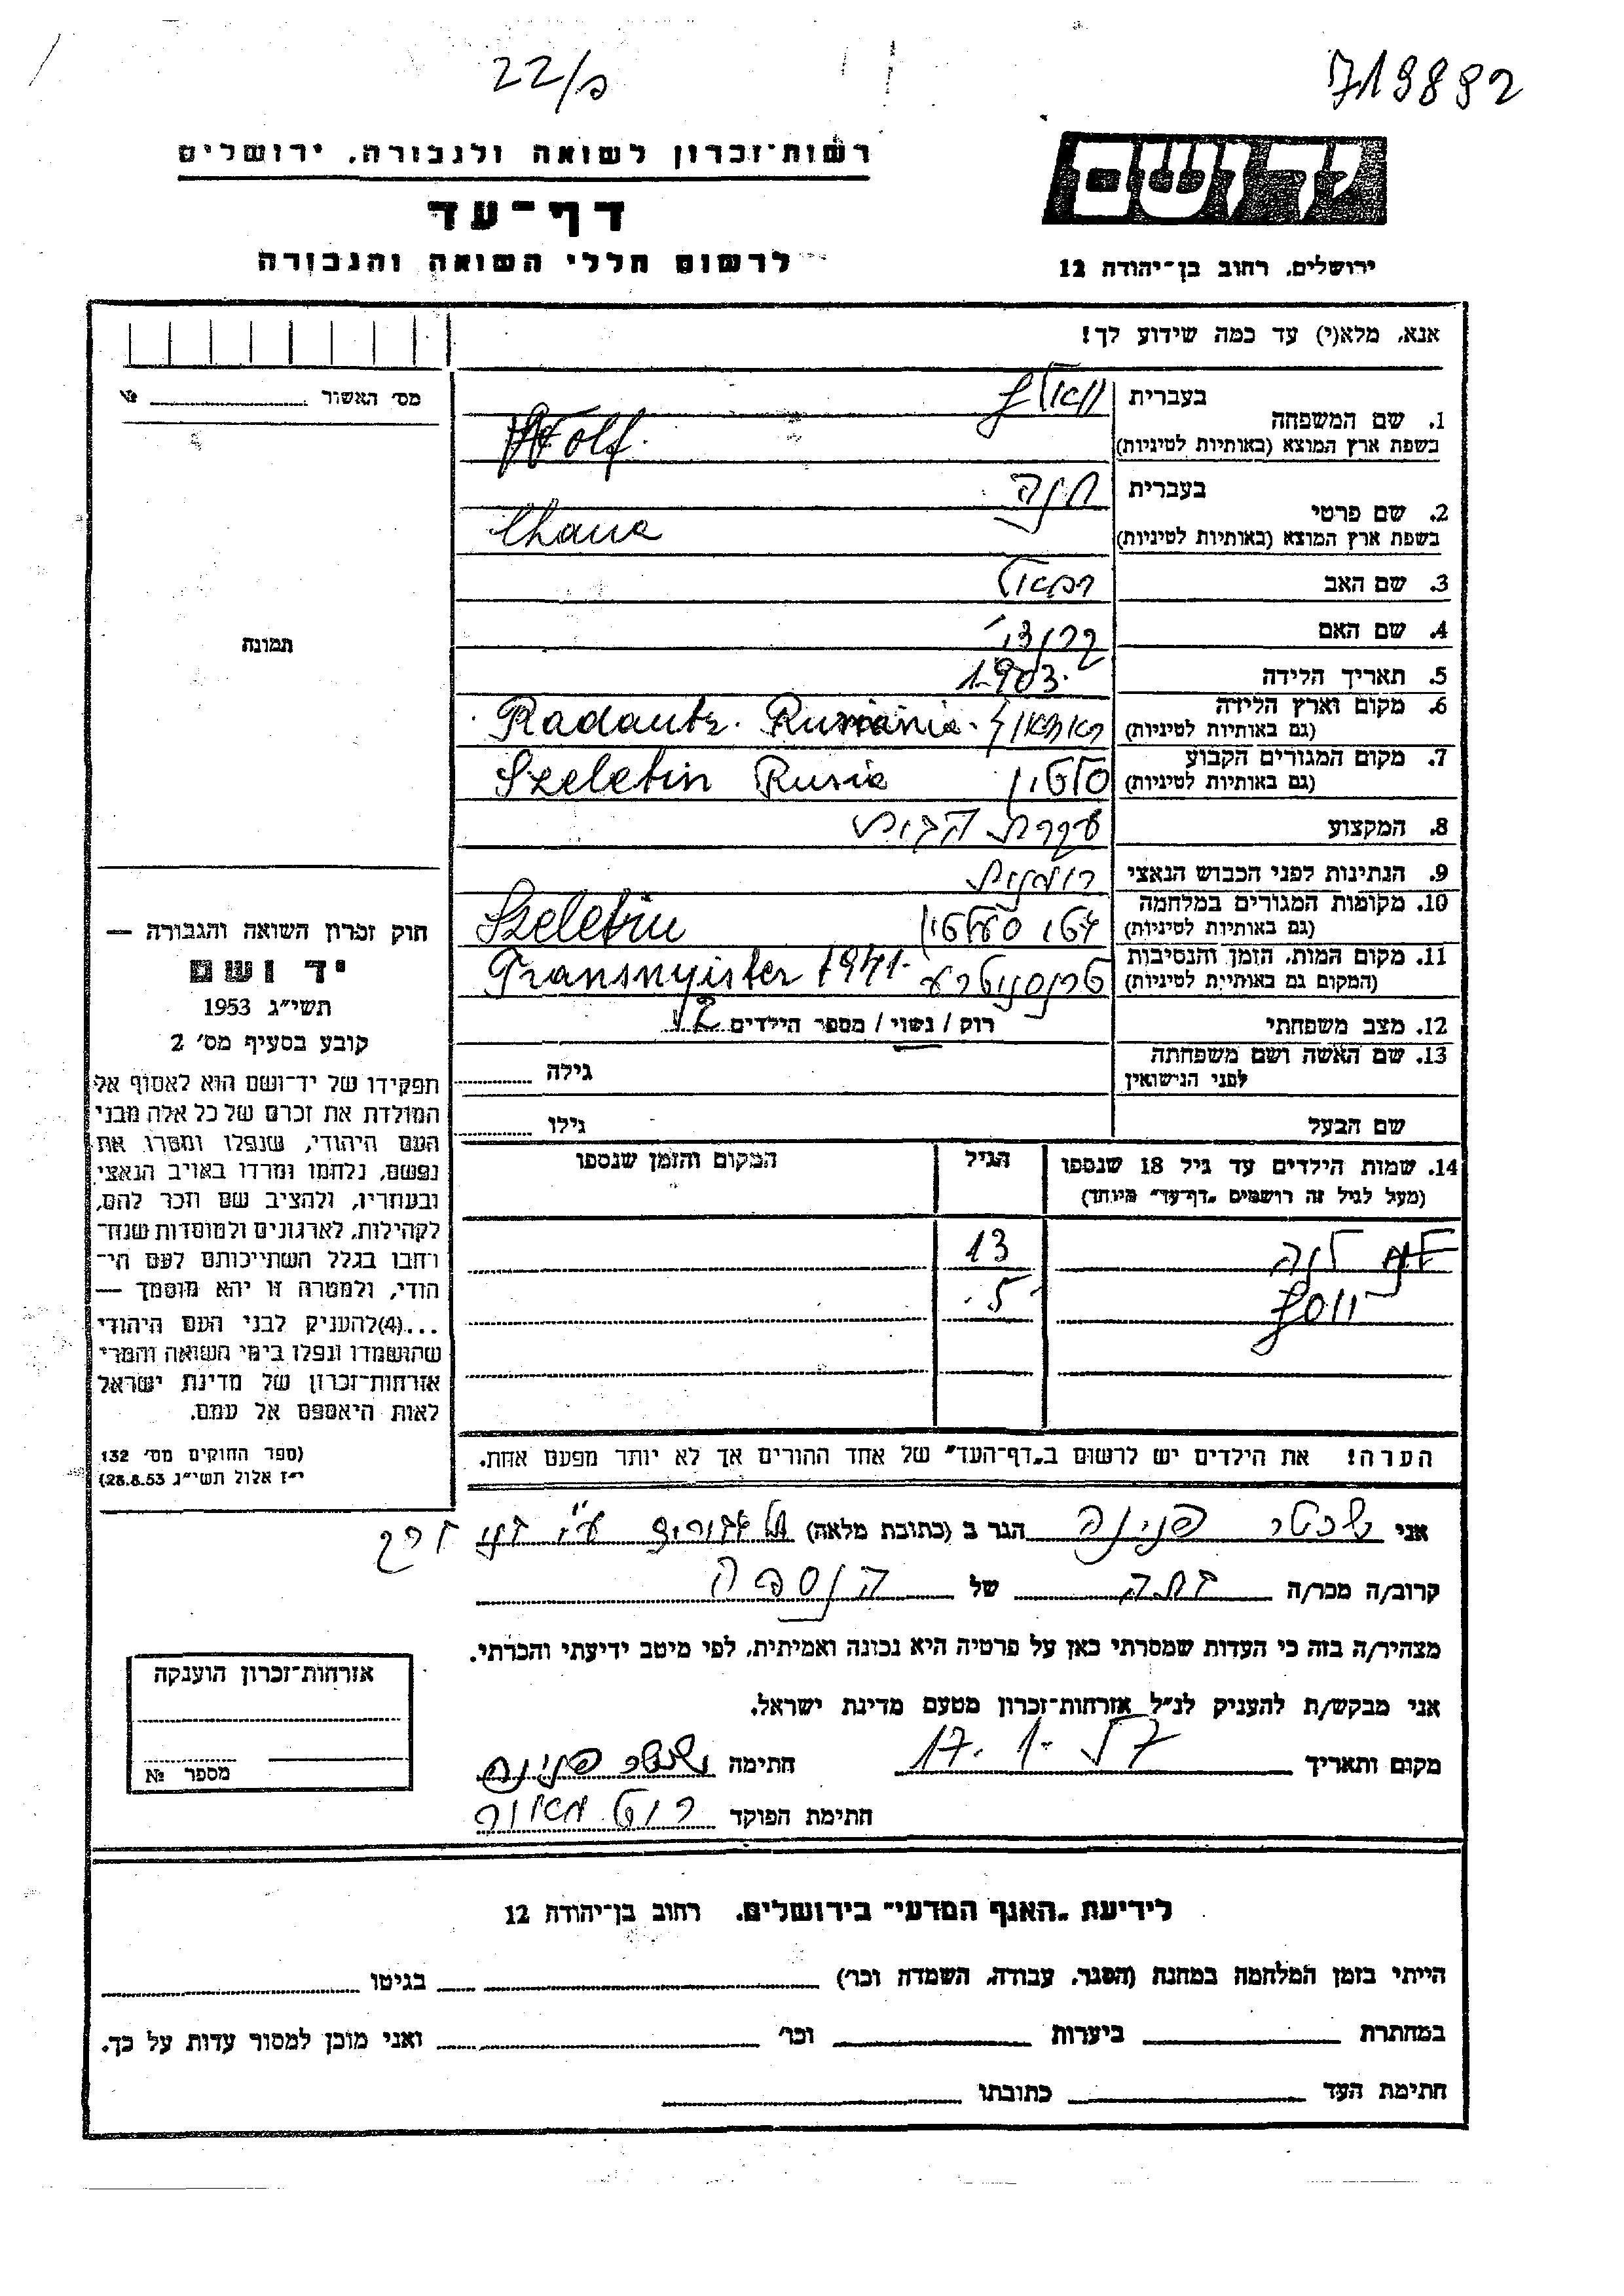 22/פ
719892
רשות־זכרון לשואה ולגבורה, ירושלים
יד ושם
דף־עד
לרשום חללי השואה והגבורה
ירושלים, רחוב בן־יהודה 12
אנא, מלא(י) עד כמה שידוע לך!
מס׳ האשור №
1. שם המשפחה בעברית וואלף
בשפת ארץ המוצא (באותיות לטיניות) Wolf.
2. שם פרטי בעברית חנה
בשפת ארץ המוצא (באותיות לטיניות) Chana
3. שם האב רפאל
4. שם האם
תמונה
5. תאריך הלידה 1903.
6. מקום וארץ הלידה (גם באותיות לטיניות) Radautz. Rumania.
7. מקום המגורים הקבוע (גם באותיות לטיניות) סלטין Szeletin Rusia
8. המקצוע עקרת הבית
9. הנתינות לפני הכבוש הנאצי רומנית
10. מקומות המגורים במלחמה (גם באותיות לטיניות) Szeletin
11. מקום המות, הזמן והנסיבות (המקום גם באותיות לטיניות) Transnyister 1941.
12. מצב משפחתי רוק / נשוי / מספר הילדים 2
13. שם האשה ושם משפחתה לפני הנישואין גילה
שם הבעל גילו
14. שמות הילדים עד גיל 18 שנספו (מעל לגיל זה רושמים „דף־עד” מיוחד) הגיל המקום והזמן שנספו
לנה 13
יוסף 5.
חוק זכרון השואה והגבורה —
יד ושם
תשי״ג 1953
קובע בסעיף מס׳ 2
תפקידו של יד־ושם הוא לאסוף אל
המולדת את זכרם של כל אלה מבני
העם היהודי, שנפלו ומסרו את
נפשם, נלחמו ומרדו באויב הנאצי
ובעוזריו, ולהציב שם וזכר להם,
לקהילות, לארגונים ולמוסדות שנח־
רחבו בגלל השתייכותם לעם הי־
הודי, ולמטרה זו יהא מוסמך —
...(4)להעניק לבני העם היהודי
שהושמדו ונפלו בימי השואה והמרי
אזרחות־זכרון של מדינת ישראל
לאות היאספם אל עמם.
(ספר החוקים מס׳ 132
י״ז אלול תשי״ג 28.8.53)
הערה! את הילדים יש לרשום ב„דף־העד” של אחד ההורים אך לא יותר מפעם אחת.
אני שכטר פנינה הגר ב (כתובת מלאה)
קרוב/ה מכר/ה של הנספה
מצהיר/ה בזה כי העדות שמסרתי כאן על פרטיה היא נכונה ואמיתית, לפי מיטב ידיעתי והכרתי.
אני מבקש/ת להעניק לנ״ל אזרחות־זכרון מטעם מדינת ישראל.
מקום ותאריך 17.1.57 חתימה שכטר פנינה
חתימת הפוקד
אזרחות־זכרון הוענקה
מספר №
לידיעת „האגף המדעי” בירושלים, רחוב בן־יהודה 12
הייתי בזמן המלחמה במחנה (הסגר, עבודה, השמדה וכו׳) בגיטו
במחתרת ביערות וכו׳ ואני מוכן למסור עדות על כך.
חתימת העד כתובתו